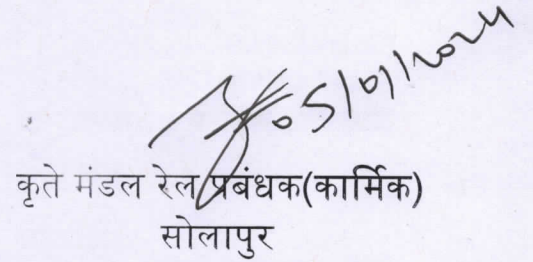 05/01/2024
कृते मंडल रेल प्रबंधक(कार्मिक)
सोलापुर